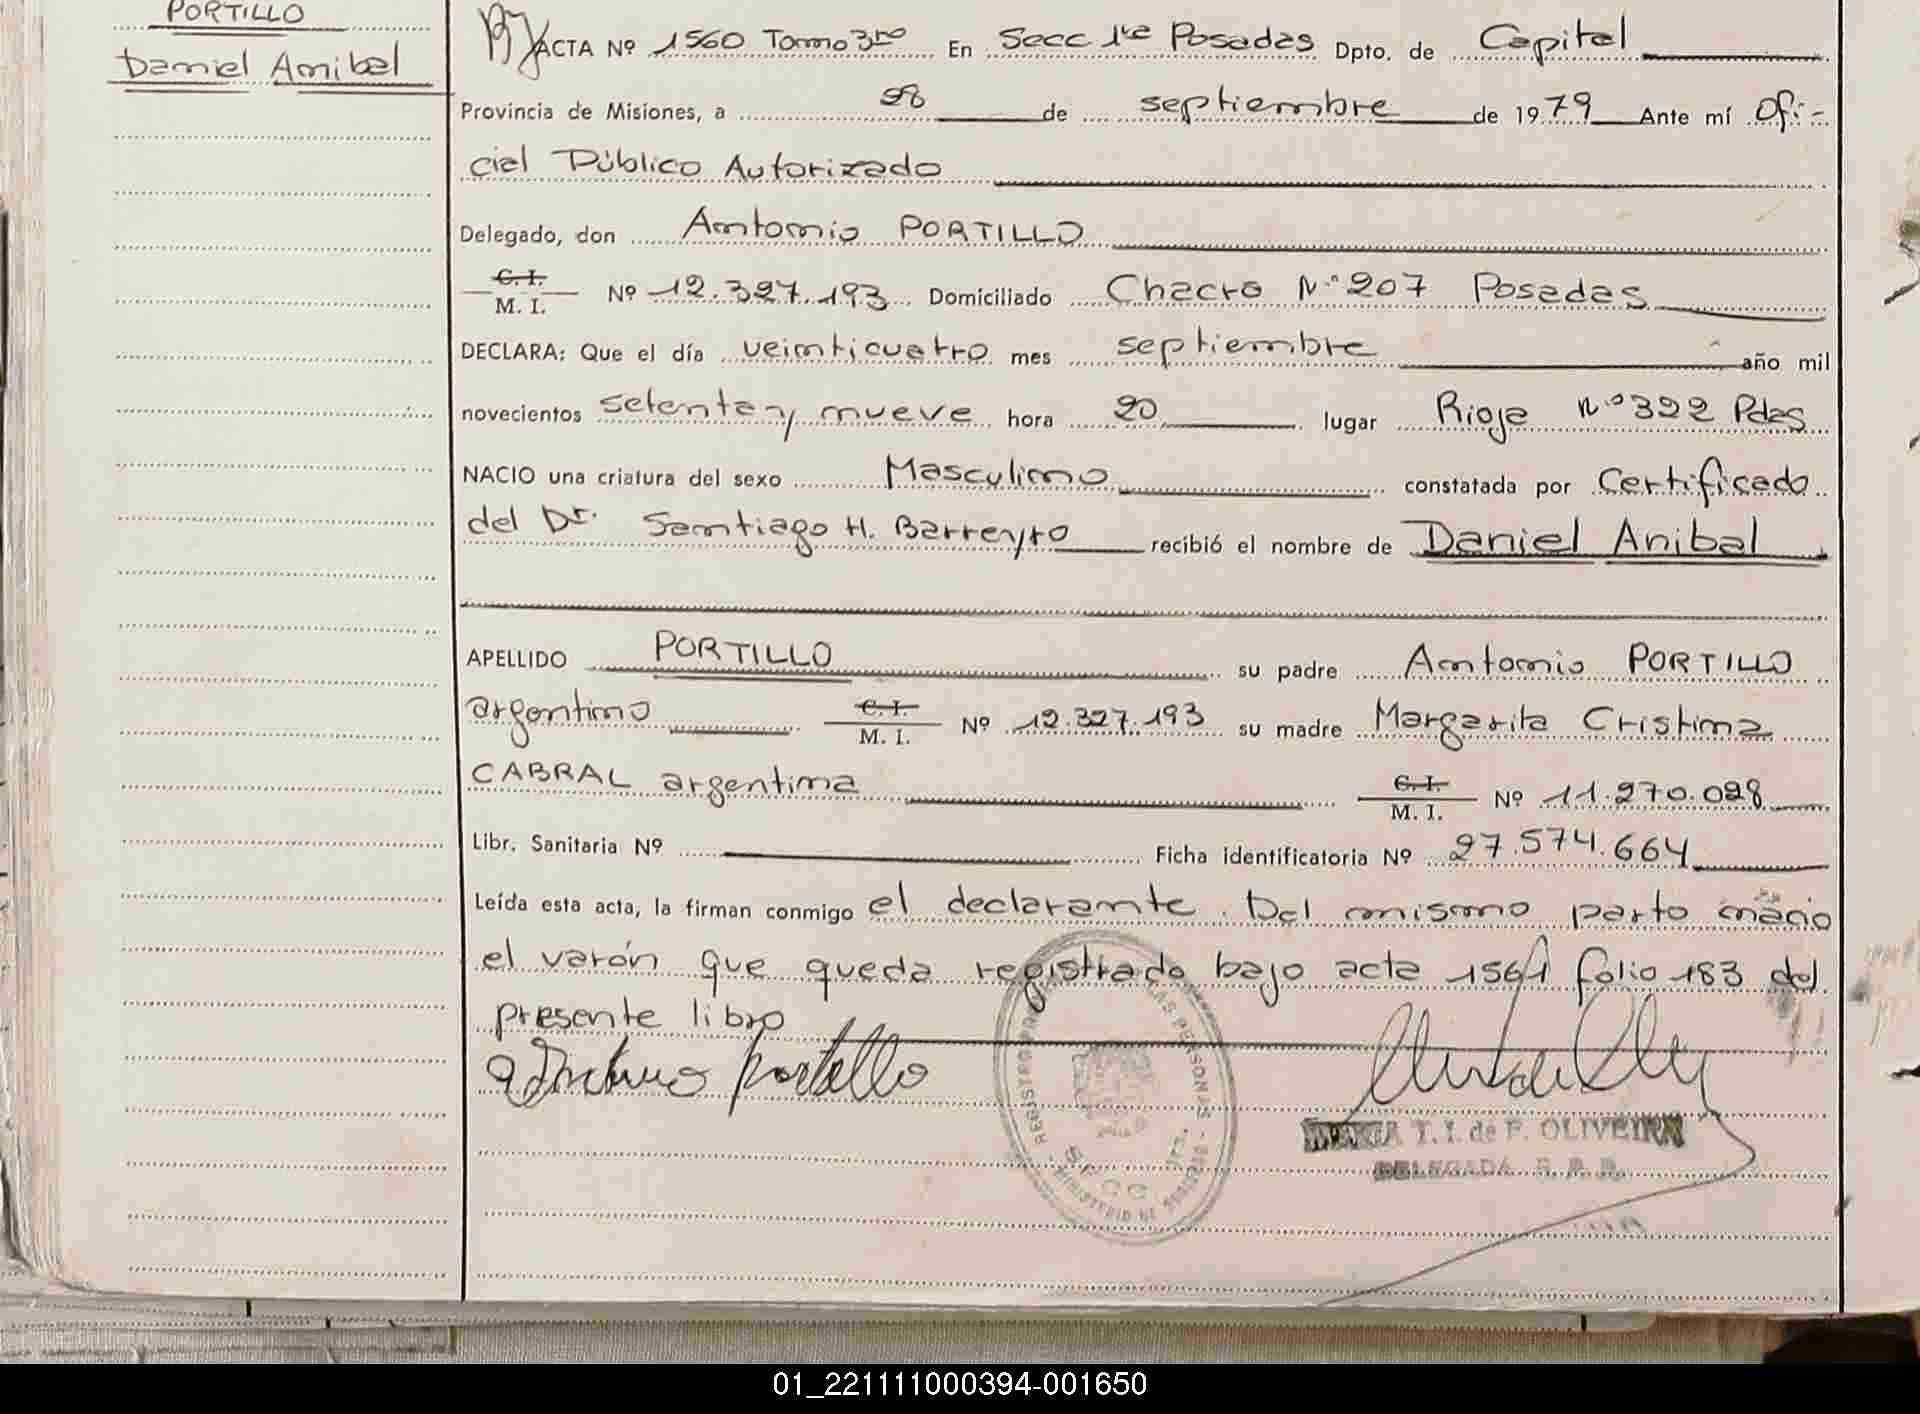 PORTILLO
Daniel Anibal
ACTA Nº 1560 Tomo 3ro En Secc 1ra Posadas Dpto. de Capital
Provincia de Misiones, a 28 de septiembre de 1979 Ante mí Ofi-
cial Público Autorizado
Delegado, don Antonio PORTILLO
C.I.
M. I. Nº 12.327.193 Domiciliado Chacra Nº 207 Posadas
DECLARA: Que el día veinticuatro mes septiembre año mil
novecientos setenta y nueve hora 20 lugar Rioja nº 322 Pdas
NACIO una criatura del sexo Masculino constatada por Certificado
del Dr. Santiago H. Barreyro recibió el nombre de Daniel Anibal
APELLIDO PORTILLO su padre Antonio PORTILLO
argentino C.I. M. I. Nº 12.327.193 su madre Margarita Cristina
CABRAL argentina C.I. M. I. Nº 11.270.028
Libr. Sanitaria Nº Ficha identificatoria Nº 27.574.664
Leída esta acta, la firman conmigo el declarante. Del mismo parto nació
el varón que queda registrado bajo acta 1561 folio 183 del
presente libro
Antonio Portillo
REGISTRO PR LAS PERSONAS
MINISTERIO DE
MARIA T. I. de F. OLIVEIRA
DELEGADA R. P. P.
01_221111000394-001650